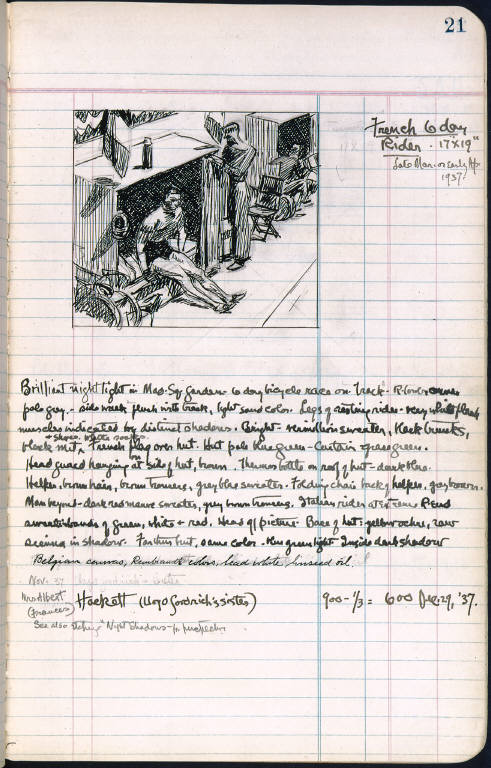 21
French 6 day
Rider. 17"X19"
Late Mar. or Early Ap.
1937.
Brilliant night light in Mad. Sq Garden 6 day bicycle race on. Track
pale grey. side walk flush with track, light sand color. Legs of resting rider very white flesh
muscles indicated by distinct shadows. Bright vermillion sweater, black trunks,
& shoes. white socks.
black mit, French flag over hut. Hut pale blue green. Curtain grass green.
on
Head guard hanging at side of hut, brown. Thermos bottle on roof of hut - dark blue.
Helper, brown hair, brown trousers, grey blue sweater. Folding chair back of helper, grey brown.
Man beyond - dark red mauve sweater, grey brown trousers. Italian rider at extreme R end
sweater bands of green, white & red. Head of picture Base of hut - yellow ochre, raw
sienna in shadow. Farther hut, same color. blue green light Inside dark shadow
Belgian canvas, Rembrandt colors, lead white, linseed oil.
Nov. 37
Mrs Albert Hackett (Lloyd Goodrich's sister) 900 - 1/3 = 600 Dec. 29, '37.
(Frances)
See also etching "Night Shadows - for perspective